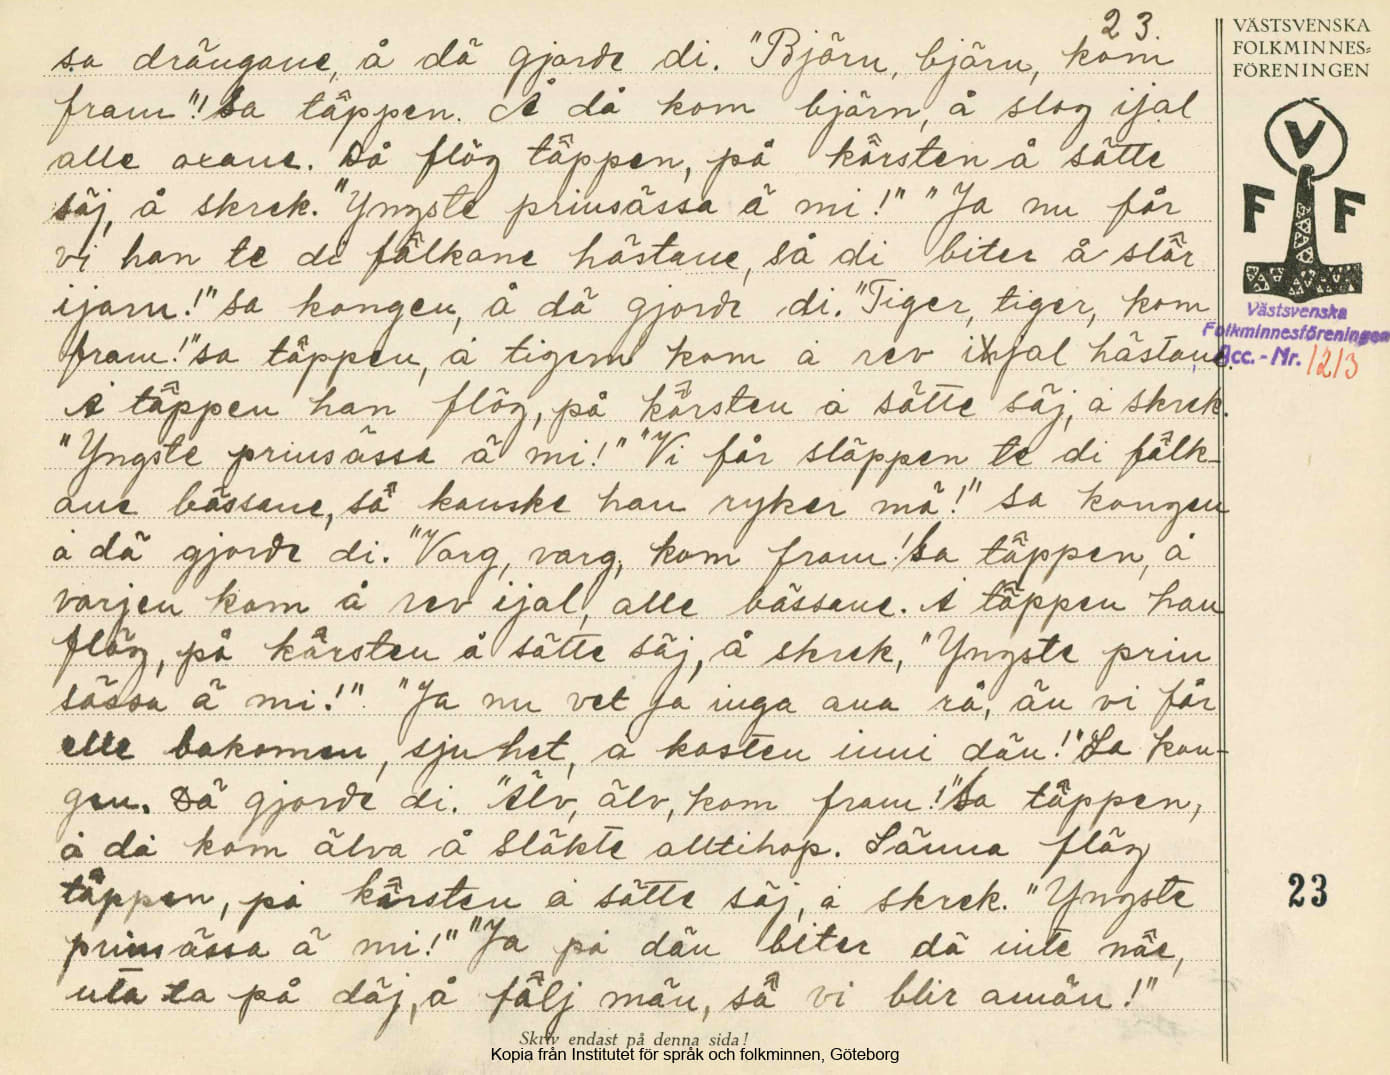 23.
VÄSTSVENSKA
FOLKMINNES=
FÖRENINGEN
sa drängane, å dä gjorde di. "Björn, björn, kom
fram"! sa täppen. Å då kom björn, å slog ijal
alle oxane. Då flög täppen, på kârsten å sätte
säj, å skrek. "Yngste prinsässa ä mi!" "Ja nu får
vi han te di fâlkane hästane, så di biter å slâr
ijam!" sa kongen, å dä gjorde di. "Tiger, tiger, kom
fram!" sa täppen, å tigern kom å rev ijal hästane.
Å täppen han flög, på kârsten å sätte säj, å skrek.
"Yngste prinsässa ä mi!" "Vi får släppen te di fâlk-
ane bässane, så kanske han ryker mä!" sa kongen
å dä gjorde di. "Varg, varg, kom fram! sa täppen, å
varjen kom å rev ijal, alle bässane. Å täppen han
flög, på kârsten å sätte säj, å skrek, "Yngste prin
sässa ä mi!" "Ja nu vet ja inga ana rå, än vi får
elle bakomen, sjuhet, å kasten inni dän!" Sa kon-
gen. Dä gjorde di. "Älv, älv, kom fram!" sa täppen,
å då kom älva å släkte alltihop. Sänna flög
täppen, på kârsten å sätte säj, å skrek. "Yngste
prinsässa ä mi!" "Ja på dän biter dä inte nåe,
uta ta på däj, å fâlj män, så vi blir amän!"
V
F F
Västsvenska
Folkminnesföreningen
Acc. - Nr. 1213
23
Skriv endast på denna sida!
Kopia från Institutet för språk och folkminnen, Göteborg